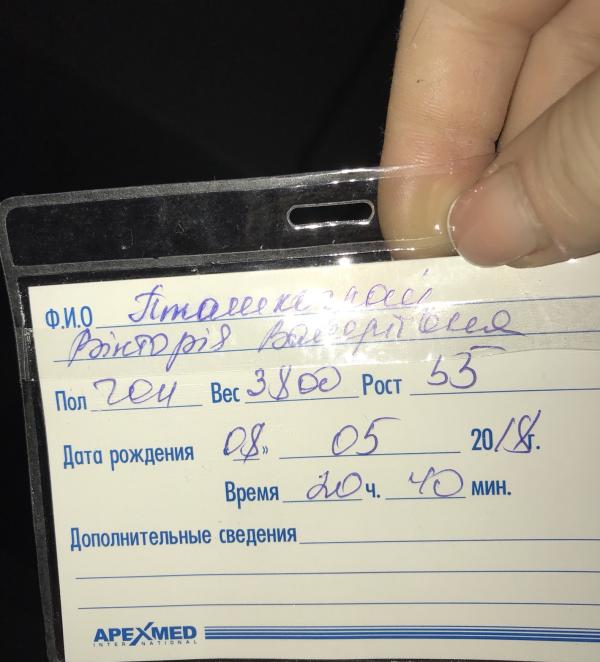 Ф.И.О
Вікторія
Пол чол Вес 3800 Рост 55
Дата рождения 08 » 05 2018г.
Время 20 ч. 40 мин.
Дополнительные сведения
APEXMED
INTERNATIONAL